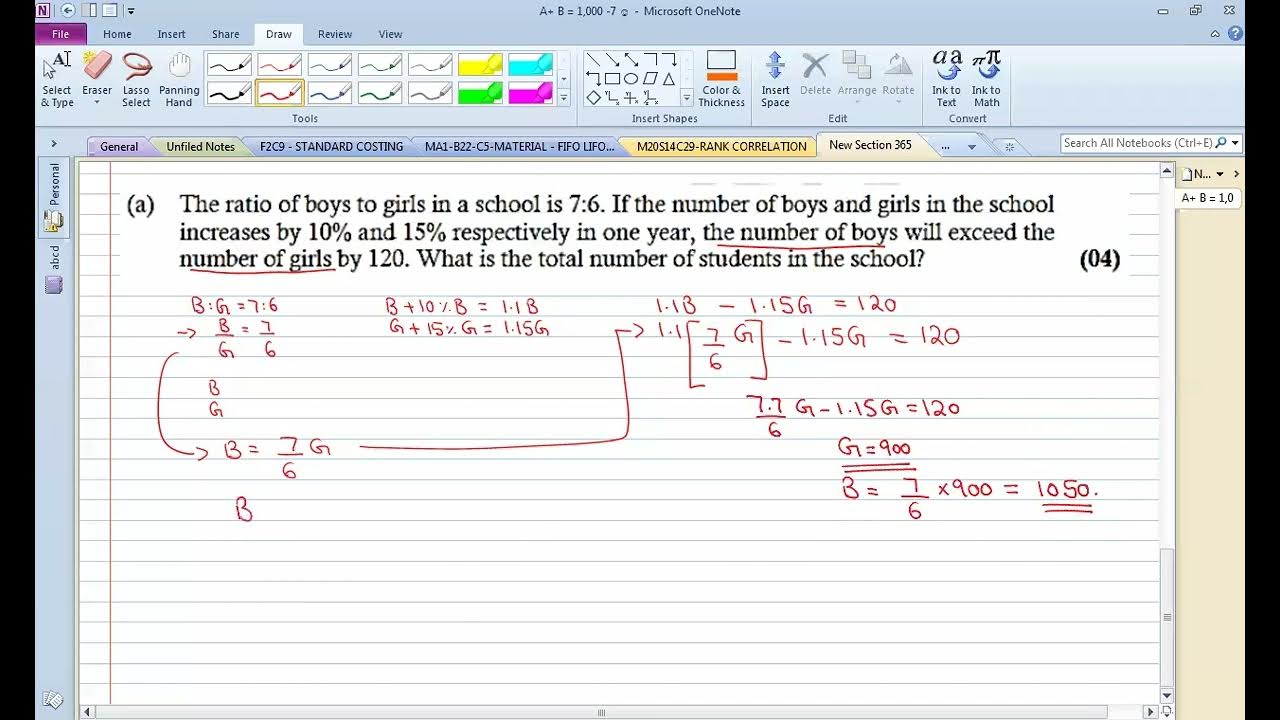 A+ B = 1,000 -7 ☺ - Microsoft OneNote
File Home Insert Share Draw Review View
Select & Type
Eraser
Lasso Select
Panning Hand
Color & Thickness
Insert Space
Delete
Arrange
Rotate
Ink to Text
Ink to Math
Tools
Insert Shapes
Edit
Convert
General
Unfiled Notes
F2C9 - STANDARD COSTING
MA1-B22-C5-MATERIAL - FIFO LIFO...
M20S14C29-RANK CORRELATION
New Section 365
...
Search All Notebooks (Ctrl+E)
Personal
abcd
N...
A+ B = 1,0
(a) The ratio of boys to girls in a school is 7:6. If the number of boys and girls in the school
increases by 10% and 15% respectively in one year, the number of boys will exceed the
number of girls by 120. What is the total number of students in the school? (04)
B:G = 7:6
→ B/G = 7/6
B
G
B = 7/6 G
B
B + 10% B = 1.1B
G + 15% G = 1.15G
1.1B - 1.15G = 120
1.1[7/6 G] - 1.15G = 120
7.7/6 G - 1.15G = 120
G = 900
B = 7/6 × 900 = 1050.